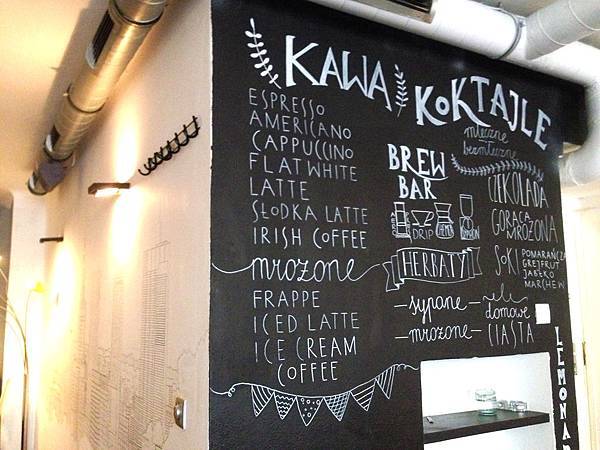 KAWA
ESPRESSO
AMERICANO
CAPPUCCINO
FLAT WHITE
LATTE
SŁODKA LATTE
IRISH COFFEE
mrożone
FRAPPE
ICED LATTE
ICE CREAM
COFFEE
KOKTAJLE
mleczne
bezmleczne
BREW
BAR
DRIP
CHEMEX
HERBATY
sypane
mrożone
CZEKOLADA
GORĄCA
MROŻONA
SOKI
POMARAŃCZA
GREJFRUT
JABŁKO
MARCHEW
domowe
CIASTA
LEMONA